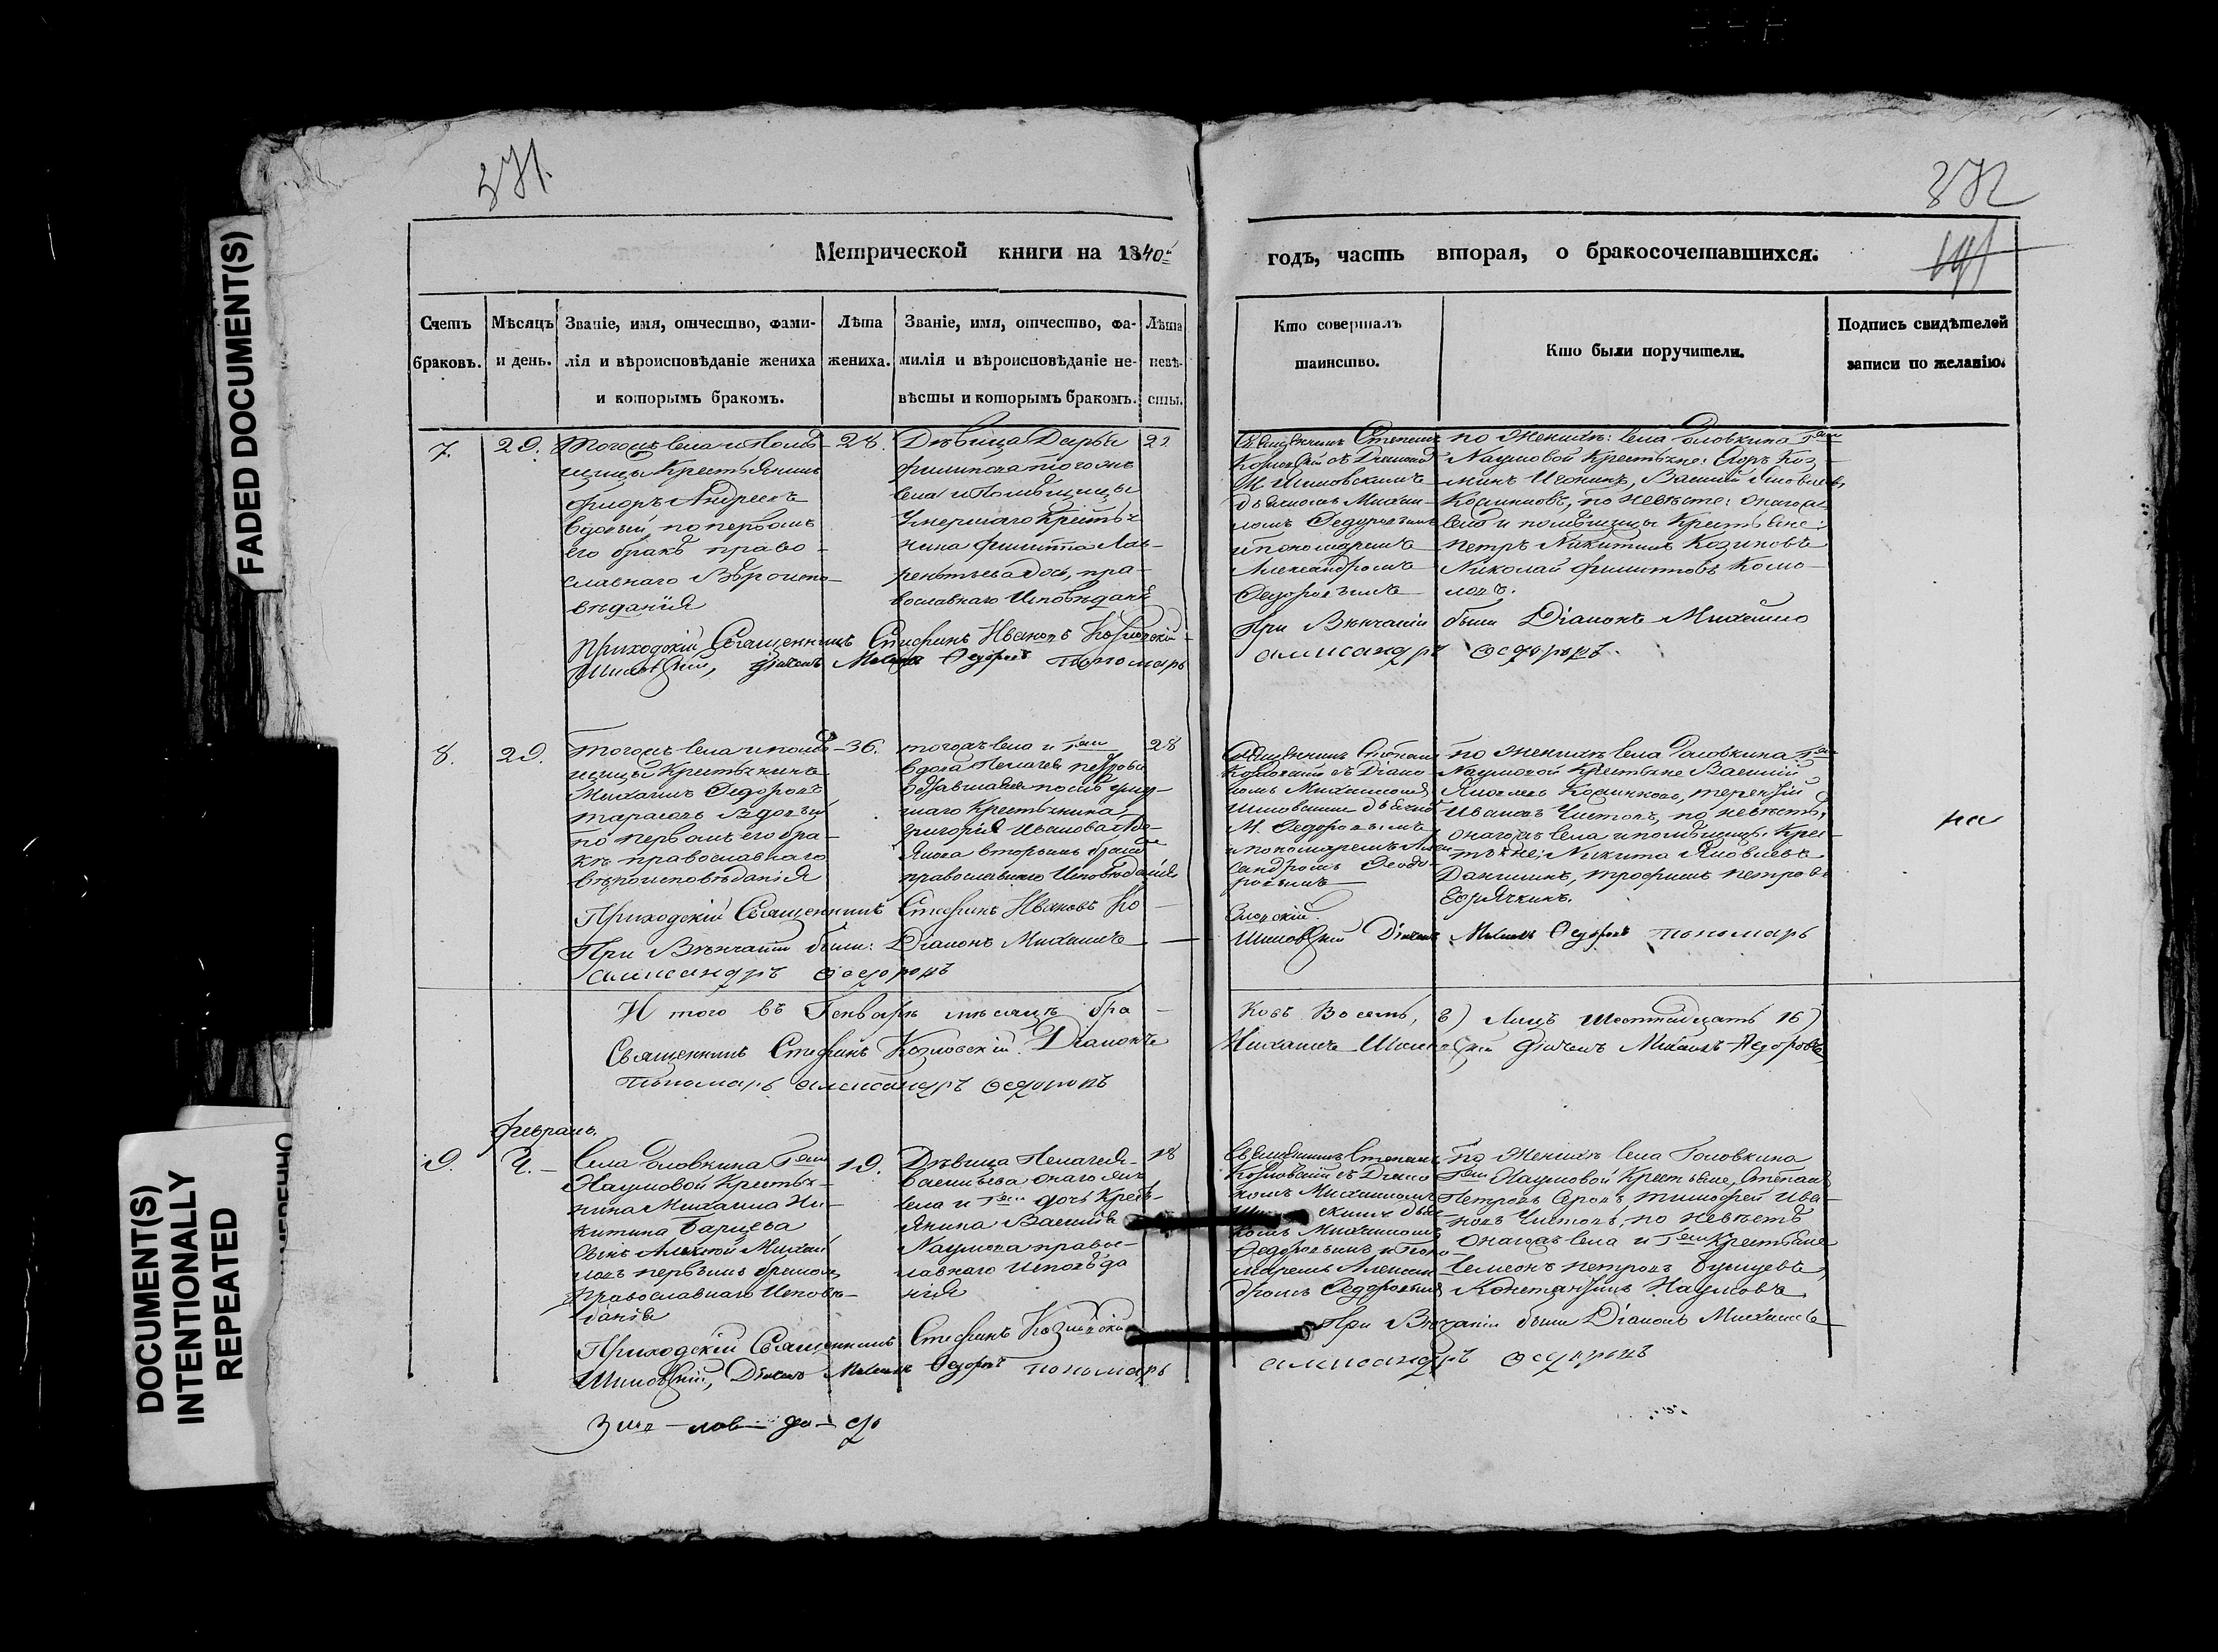 FADED DOCUMENT(S)
DOCUMENT(S)
INTENTIONALLY
REPEATED
371.
372
Метрической книги на 1840й
годъ, часть вторая, о бракосочетавшихся.
Счетъ
браковъ.
Мѣсяцъ
и день.
Званіе, имя, отчество, фами-
лія и вѣроисповѣданіе жениха
и которымъ бракомъ.
Лѣта
жениха.
Званіе, имя, отчество, фа-
милія и вѣроисповѣданіе не-
вѣсты и которымъ бракомъ.
Лѣта
невѣ-
сты.
Кто совершалъ
таинство.
Кто были поручители.
Подпись свидѣтелей
записи по желанію.
7.
29.
Тогожъ села и помѣ-
щицы Крестьянинъ
Флоръ Андреевъ
вдовый по первомъ
его бракѣ право-
славнаго Вѣроиспо-
вѣданія
28.
Дѣвица Дарья
Филипова тогожъ
села и помѣщицы
умершаго Крестья-
нина Филиппа Лав-
рентьева дочь, пра-
вославнаго Исповѣданія
Священникъ Стефанъ
Козловскій съ Діакономъ
М. Шиловскимъ
дьячкомъ Михаи-
ломъ Федоровымъ
и пономаремъ
Александромъ
Федоровымъ
по женихѣ: села Головкина Гжи
Наумовой Крестьяне:
Василій Яковлевъ
Калинковъ, по невѣстѣ: онагожъ
села и помѣщицы Крестьяне:
Петръ Никитинъ Козиновъ
Николай Филипповъ
Приходскій Священникъ Стефанъ Ивановъ Козловскій
При Вѣнчаніи были Діаконъ Михаилъ
Шиловскій, дьячекъ Михаилъ Федоровъ пономарь
Александръ Федоровъ.
8.
29.
Тогожъ села и помѣ-
щицы Крестьянинъ
Михаилъ Федоровъ
Тарасовъ вдовый
по первомъ его бра-
кѣ православнаго
вѣроисповѣданія
36.
тогожъ села и Гжи
вдова Пелагея Петрова
оставшаяся послѣ умер-
шаго Крестьянина
Григорія Иванова
вторымъ бракомъ
православнаго Исповѣданія
28
Священникъ Стефанъ
Козловскій съ Діако-
номъ Михаиломъ
Шиловскимъ дьячкомъ
М. Федоровымъ
и пономаремъ Алек-
сандромъ Федо-
ровымъ
по женихѣ села Головкина Гжи
Наумовой Крестьяне Василій
Яковлевъ Калинковъ, Терентій
Ивановъ Чистовъ, по невѣстѣ,
онагожъ села и помѣщицы Крес-
тьяне: Никита Яковлевъ
Данилинъ, Трофимъ Петровъ
Горячкинъ.
на
Приходскій Священникъ Стефанъ Ивановъ Ко-
зловскій.
При Вѣнчаніи были: Діаконъ Михаилъ
Шиловскій Дьячекъ Михаилъ Федоровъ пономарь
Александръ Федоровъ
Итого въ Генварѣ мѣсяцѣ бра-
ковъ Восемь, 8) Лицъ Шестнадцать 16)
Священникъ Стефанъ Козловскій. Діаконъ
Михаилъ Шиловскій Дьячекъ Михаилъ Федоровъ
Пономарь Александръ Федоровъ
Февраль.
9.
4.
Села Головкина Гжи
Наумовой Крестья-
нина Михаила Ни-
китина Барцева
сынъ Алексѣй Михай-
ловъ первымъ бракомъ
Православнаго Исповѣ-
данія
19.
Дѣвица Пелагея
Васильева онагожъ
села и Гжи дочь Крестъ-
янина Василія
Наумова право-
славнаго Исповѣда
нія
18
Священникъ Стефанъ
Козловскій съ Діако-
номъ Михаиломъ
дьяч-
комъ Михаиломъ
Федоровымъ и поно-
маремъ Алексан-
дромъ Федоровымъ
По женихѣ села Головкина
Гжи Наумовой Крестьяне, Степанъ
Петровъ Тимофей Ива-
новъ Чистовъ, по невѣстѣ
онагожъ села и Гжи Крестьяне
Семеонъ Петровъ
Константинъ Наумовъ
Приходскій Священникъ Стефанъ Козловскій
При Вѣнчаніи были Діаконъ Михаилъ
Шиловскій, Дьячекъ Михаилъ Федоровъ пономарь
Александръ Федоровъ